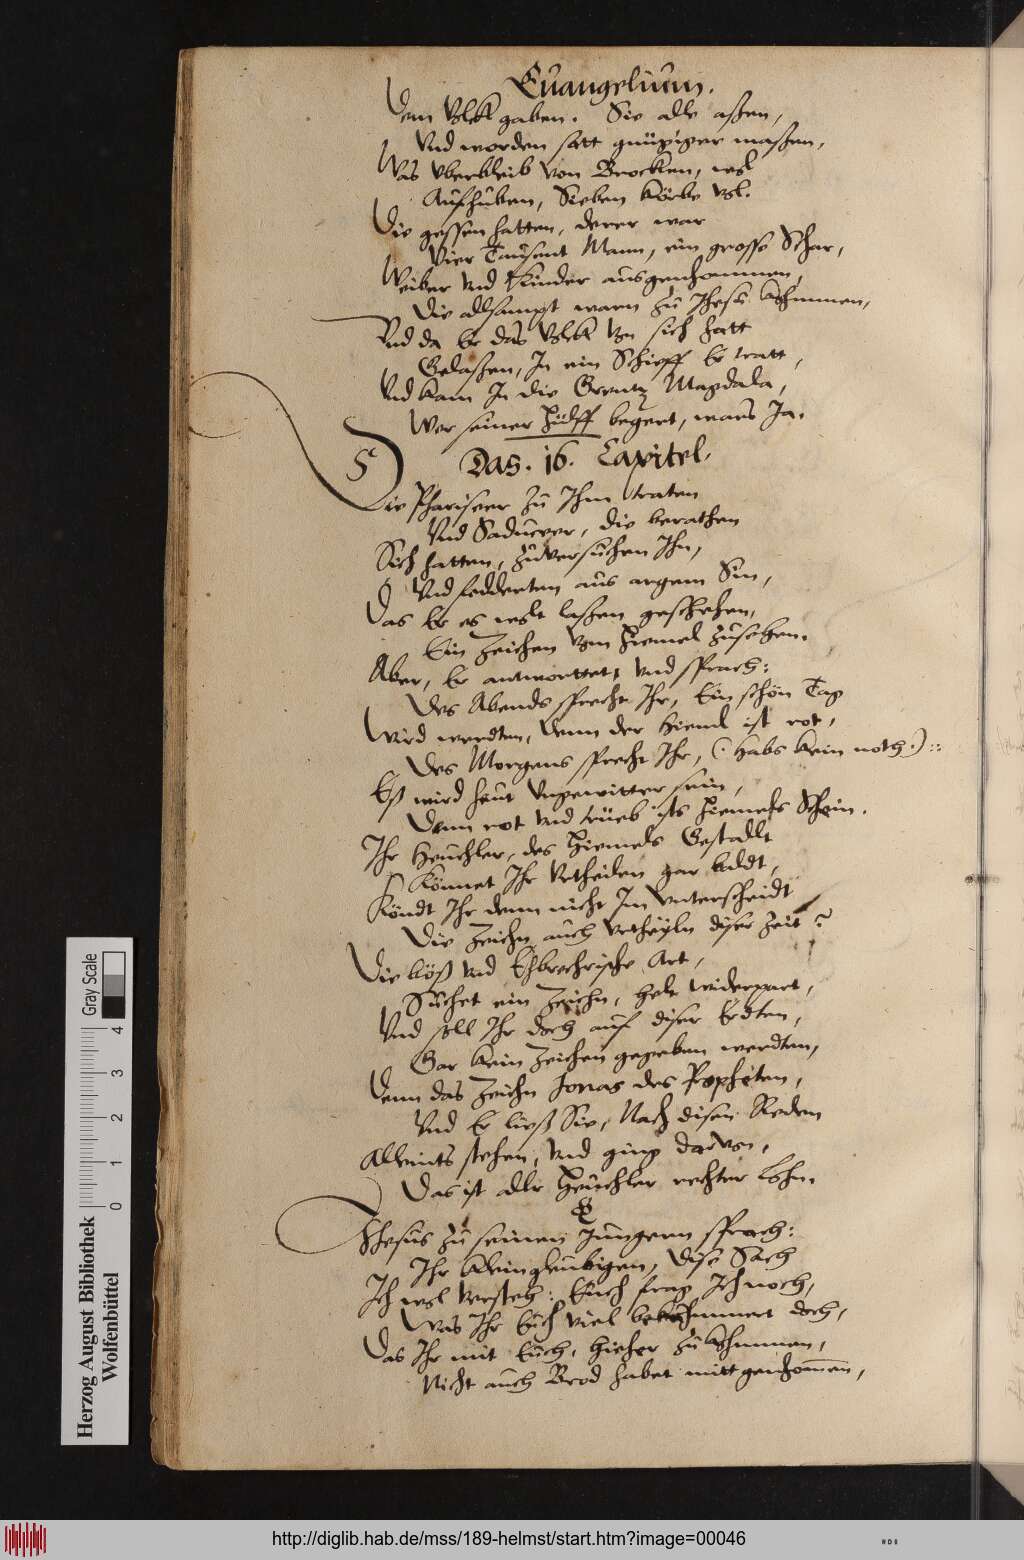 Euangelium.
Dem Volck gaben. Sie alle aßen,
Vnd worden satt gnügiger maßen,
Was vberbleib von Brocken, wol
Aufhuben, Sieben Körbe vol.
Die gessen hatten, derer war
Vier Tausent Mann, ein grosse Schar,
Weiber vnd Kinder ausgenhommen,
Die allsampt warn zu Jhesu khommen,
Vnd da Er das Volck von sich hatt
Gelaßen, In ein Schieff Er tratt,
Vnd kam In die Grentz Magdala,
Wer seiner Hülff begert, wars Ja.
Das. 16. Capitel.
Die Phariseer zu Ihm traten
Vnd Saduceer, die berathen
Sich hatten, zuversuchen Ihn,
Vnd fodderten aus argem Sin,
Das Er es wolt laßen geschehen,
Ein Zeichen vom Hiemel zusehen.
Aber, Er antworttet, vnd sprach:
Des Abends sprecht Ihr, Ein schön Tag
Wird werdten, denn der Hieml ist rot,
Des Morgens sprecht Ihr, (. habs kein noth.)::
Eß wird heut vngewitter sein,
Denn rot vnd trüeb ists Hiemels Schein.
Ihr Heuchler, des Hiemels Gestaldt
Könnet Ihr Vrtheilen gar baldt,
Köndt Ihr denn nicht Im vnterscheidt
Die Zeichn auch vrtheyln diser Zeit?
Die böß vnd Ehbrechrische Art,
Suchet ein Zeichn, helt widerpart,
Vnd soll Ihr doch auf diser Erdten,
Gar kein Zeichen gegeben werdten,
Denn das Zeichn Jonas des Propheten,
Vnd Er ließ Sie, Nach disen Reden
Alleints stehen, vnd ging daruon,
Das ist aller Heuchler rechter Lohn.
Jhesus zu seinen Jungern sprach:
Ihr kleingleubigen, dise Sach
Ich wol versteh: Euch frag Ich noch,
Was Ihr Euch viel bekhummert doch,
Das Ihr mit Euch, hieher zu khummen,
Nicht auch Brod habet mitt genhommen,
Herzog August Bibliothek
Wolfenbüttel
Gray Scale
0 1 2 3 4
http://diglib.hab.de/mss/189-helmst/start.htm?image=00046